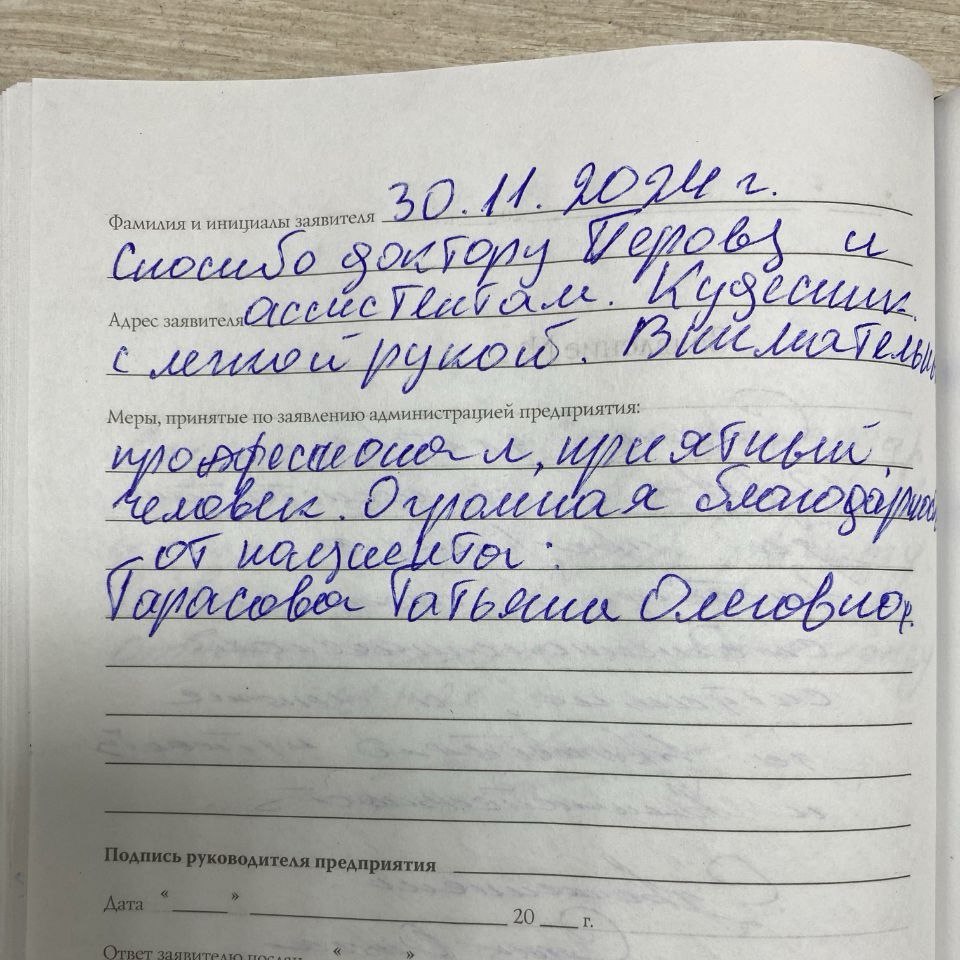 Фамилия и инициалы заявителя 30.11.2024 г.
Спосибо доктору Перову и
Адрес заявителя ассистентам. Кудесник
с легкой рукой. Внимательн
Меры, принятые по заявлению администрацией предприятия:
профессионал, приятный
человек. Огромная благодарност
от пациента:
Тарасова Татьяна Олеговна.
Подпись руководителя предприятия
Дата « » 20 г.
Ответ заявителю послан « »